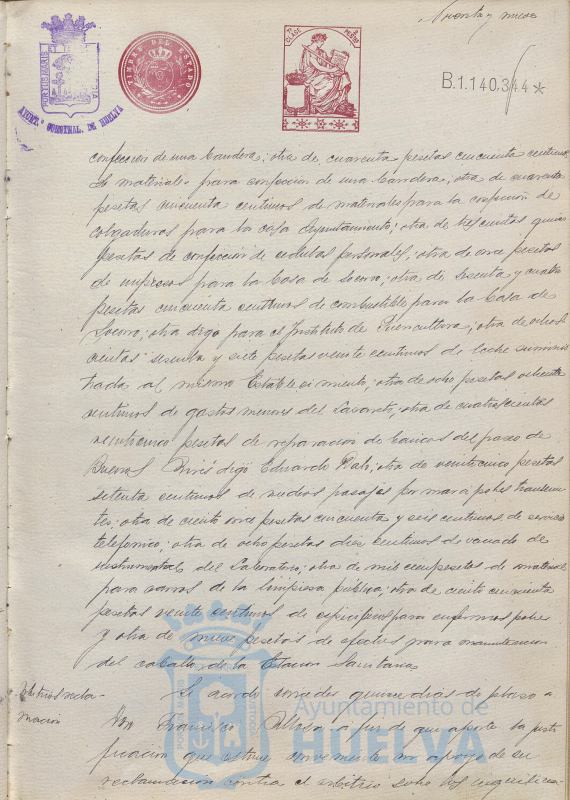 Noventa y nueve
PORTUS MARIS
AYUNT.º QUINTINAL. DE HUELVA
TIMBRE DEL ESTADO
CLASE
B.1.140.344*
confección de una bandera; otra de cuarenta pesetas cincuenta centimos
de materiales para confección de una bandera, otra de cuarenta
pesetas cincuenta centimos de materiales para la confección de
colgaduras para la casa Ayuntamiento; otra de trescientas quince
pesetas de confección de cedulas personales; otra de once pesetas
de impresos para la Casa de Socorro; otra de sesenta y cuatro
pesetas cincuenta centimos de combustible para la Casa de
Socorro; otra digo para el Instituto de Puericultura; otra de ochos
cientas sesenta y siete pesetas veinte centimos de leche suminis
trada al mismo Establecimiento; otra de ocho pesetas ochenta
centimos de gastos menores del Lazareto; otra de cuatrocientas
veinticinco pesetas de reparación de bancos del paseo de
Buenos Aires digo Eduardo Dato; otra de veinticinco pesetas
setenta centimos de medios pasajes por mar a pobres transeun
tes; otra de ciento once pesetas cincuenta y seis centimos de servicio
telefonico; otra de ocho pesetas diez centimos de
instrumental del Laboratorio; otra de mil cien pesetas de material
para carros de la limpieza pública; otra de ciento cincuenta
pesetas veinte centimos de especificos para enfermos pobres
y otra de nueve pesetas de efectos para manutención
del caballo de la Estación Sanitaria.
Arbitrios recla-
mación
Se acordó conceder quince dias de plazo a
Don Francisco a fin de que aporte la justi
ficación que estime conveniente en apoyo de su
reclamación contra el arbitrio sobre los inquilina-
Ayuntamiento de
HUELVA